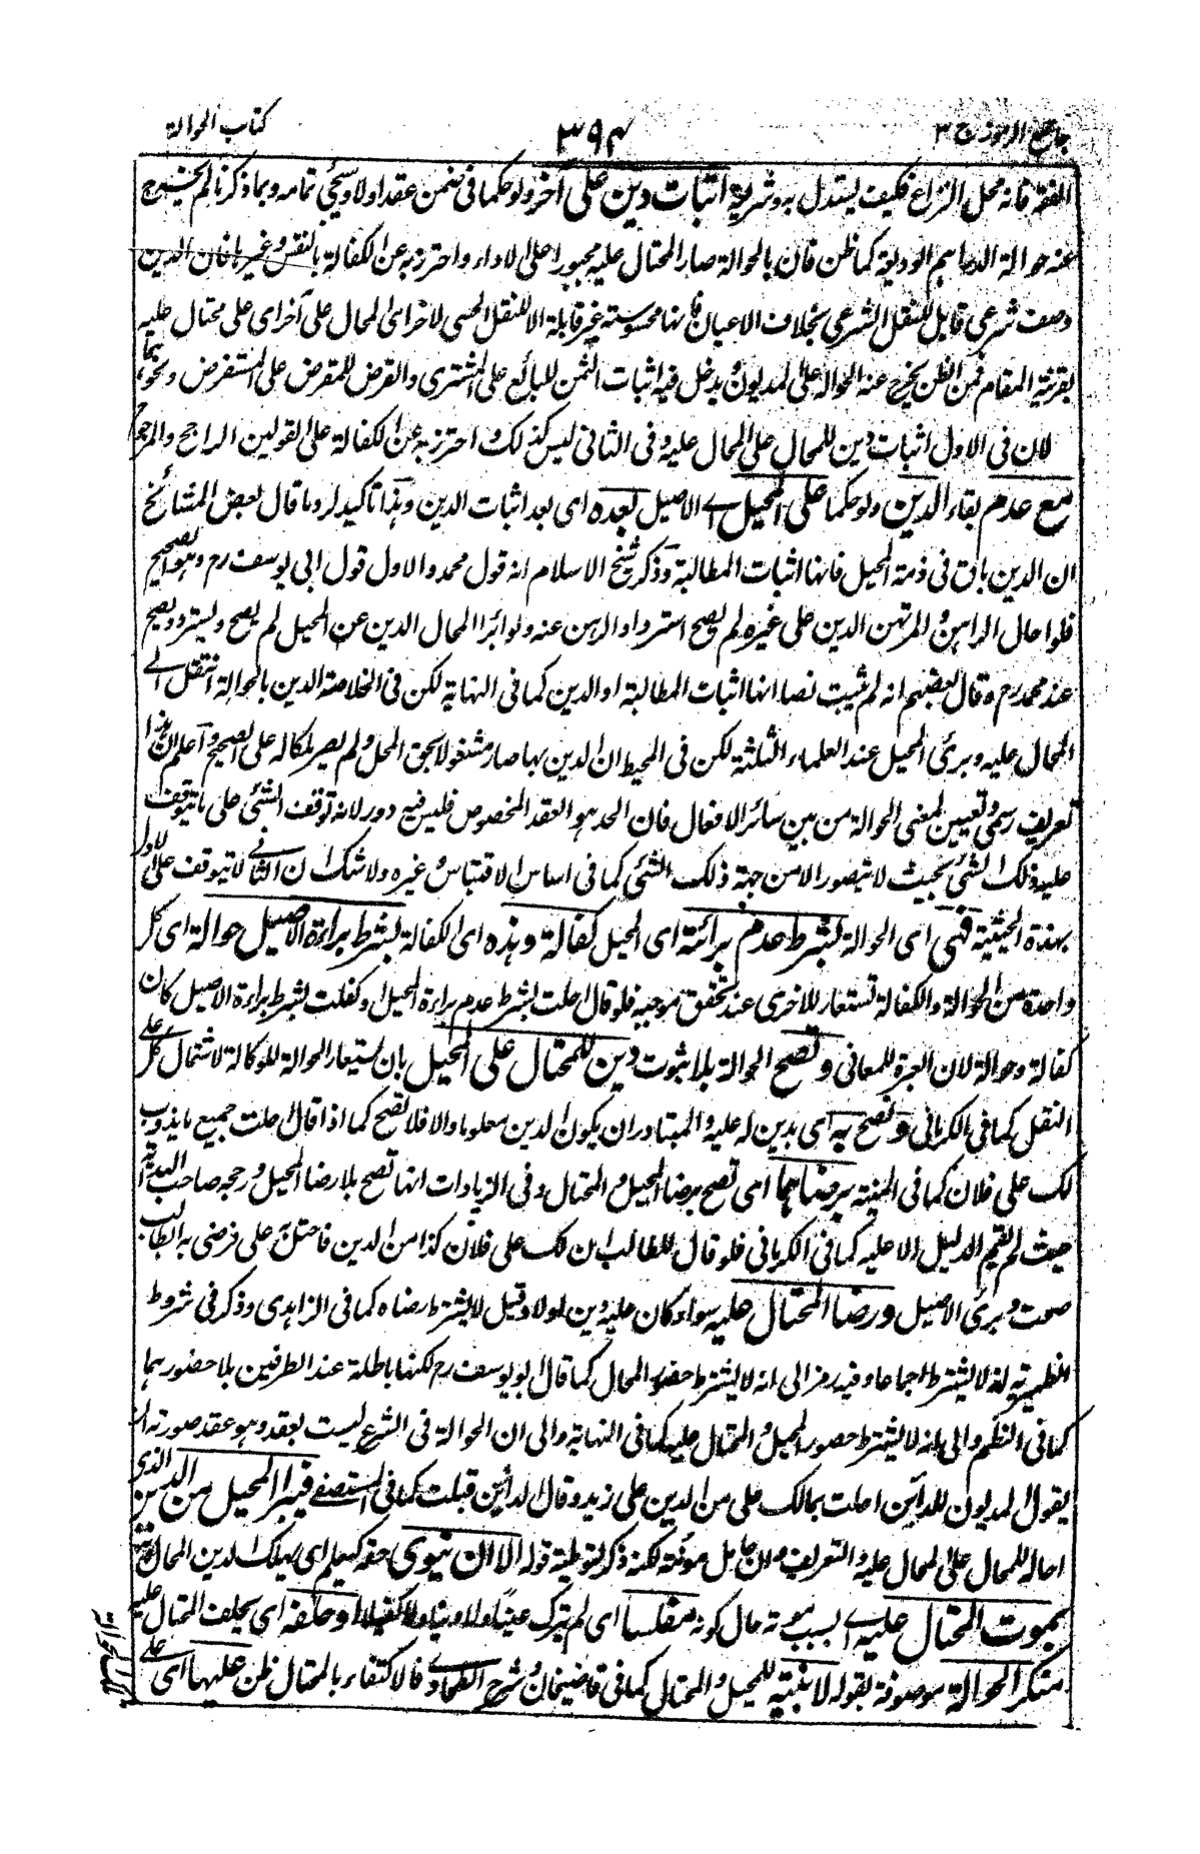 جامع الرموز ج ٣
٣٩٤
كتاب الحوالة
الفقه فانه محل النزاع فكيف يستدل به وشريعة اثبات دين على آخر ولو حكما فى ضمن عقد او لا وسيجئ تمامه وبما ذكرنا لم يخرج
عنه حوالة الدراهم الوديعة كما ظن فان بالحوالة صار المحتال عليه مجبورا على الاداء واحترز به عن الكفالة بالنفس وغيرها فان الدين
وصف شرعى قابل للنقل الشرعى بخلاف الاعيان فانها محسوسة غير قابلة الا للنقل الحسى لاخر اى لمحال على آخر اى على محتال عليه
بقرينة المقام فمن الظن يخرج عنه الحوالة على المديون ويدخل فيه اثبات الثمن للبائع على المشترى والقرض للمقرض على المستقرض ونحوهما
لان فى الاول اثبات دين للمحال على المحال عليه وفى الثانى ليس كذلك واحترز به عن الكفالة على القولين الراجح والمرجوح
مع عدم بقاء الدين ولو حكما على المحيل اى الاصيل بعده اى بعد اثبات الدين وهذا تاكيد لرد ما قال بعض المشائخ
ان الدين باق فى ذمة المحيل فانها اثبات المطالبة وذكر شيخ الاسلام انه قول محمد والاول قول ابى يوسف رح وهو الصحيح
فلو احال الراهن المرتهن الدين على غيره لم يصح استرداد الرهن عنه ولو ابرأ المحال الدين عن المحيل لم يصح ويسترد ويصح
عند محمد رح وقال بعضهم انه لم يثبت نصا انها اثبات المطالبة او الدين كما فى النهاية لكن فى الخلاصة الدين بالحوالة انتقل الى
المحال عليه وبرئ المحيل عند العلماء الثلثة لكن فى المحيط ان الدين بها صار مشغولا بحق المحال ولم يصر ملكا له على الصحيح وآعلم ان هذا
تعريف رسمى وتعيين لمعنى الحوالة من بين سائر الافعال فان الحد هو العقد المخصوص فليس فيه دور لانه توقف الشئى على ما يتوقف
عليه ذلك الشئى بحيث لا يتصور الا من جهة ذلك الشئى كما فى اساس الاقتباس وغيره ولا شك ان الثانى لا يتوقف على الاول
بهذه الحيثية فهى اى الحوالة بشرط عدم برائته اى المحيل كفالة وهذه اى الكفالة بشرط براءة الاصيل حوالة اى كل
واحدة من الحوالة والكفالة تستعار للاخرى عند تحقق موجبه فلو قال احلت بشرط عدم براءة المحيل او كفلت بشرط براءة الاصيل كان
كفالة وحوالة لان العبرة للمعانى وتصح الحوالة بلا ثبوت دين للمحتال على المحيل بان يستعار الحوالة للوكالة لاشتمال كل على
النقل كما فى الكرمانى وتصح به اى بدين له عليه والمتبادر ان يكون الدين معلوما والا فلا تصح كما اذا قال احلت جميع ما يذوب
لك على فلان كما فى المنية برضاهما اى تصح برضا المحيل والمحتال وفى الزيادات انها تصح بلا رضا المحيل ورجحه صاحب الهداية
حيث لم يقم الدليل الا عليه كما فى الكرمانى فلو قال للطالب ان لك على فلان كذا من الدين فاحتله على فرضى به الطالب
صحت وبرئ الاصيل ورضا المحتال عليه سواء كان عليه دين او لا وقيل لا يشترط رضاه كما فى الزاهدى وذكر فى شروط
الظهيرية انه لا يشترط اجماعا وفيه رمز الى انه لا يشترط حضور المحال كما قال ابو يوسف رح لكنها باطلة عند الطرفين بلا حضورهما
كما فى النظم والى انه لا يشترط حضور المحيل والمحتال عليه كما فى النهاية والى ان الحوالة فى الشرع ليست بعقد وهو عقد صورته ان
يقول المديون للدائن احلت بمالك على من الدين على زيد وقال الدائن قبلت كما فى المستصفى فيبرأ المحيل من الدين الذى
احاله للمحال على المحال عليه والتعريف وان حمل مونته لكنه ذكر توطية قوله الا ان يتوى حقه كيعلم اى يهلك الدين المحال
بموت المحتال عليه اى بسبب موته حال كونه مفلسا اى لم يترك عينا ولا دينا ولا كفيلا او حلفه اى يحلف المحتال عليه
منكر الحوالة موصوفة بقوله لا بينة للمحيل والمحتال كما فى قاضيخان وشرح الطحاوى فالاكتفاء بالمحتال ظن عليها اى على